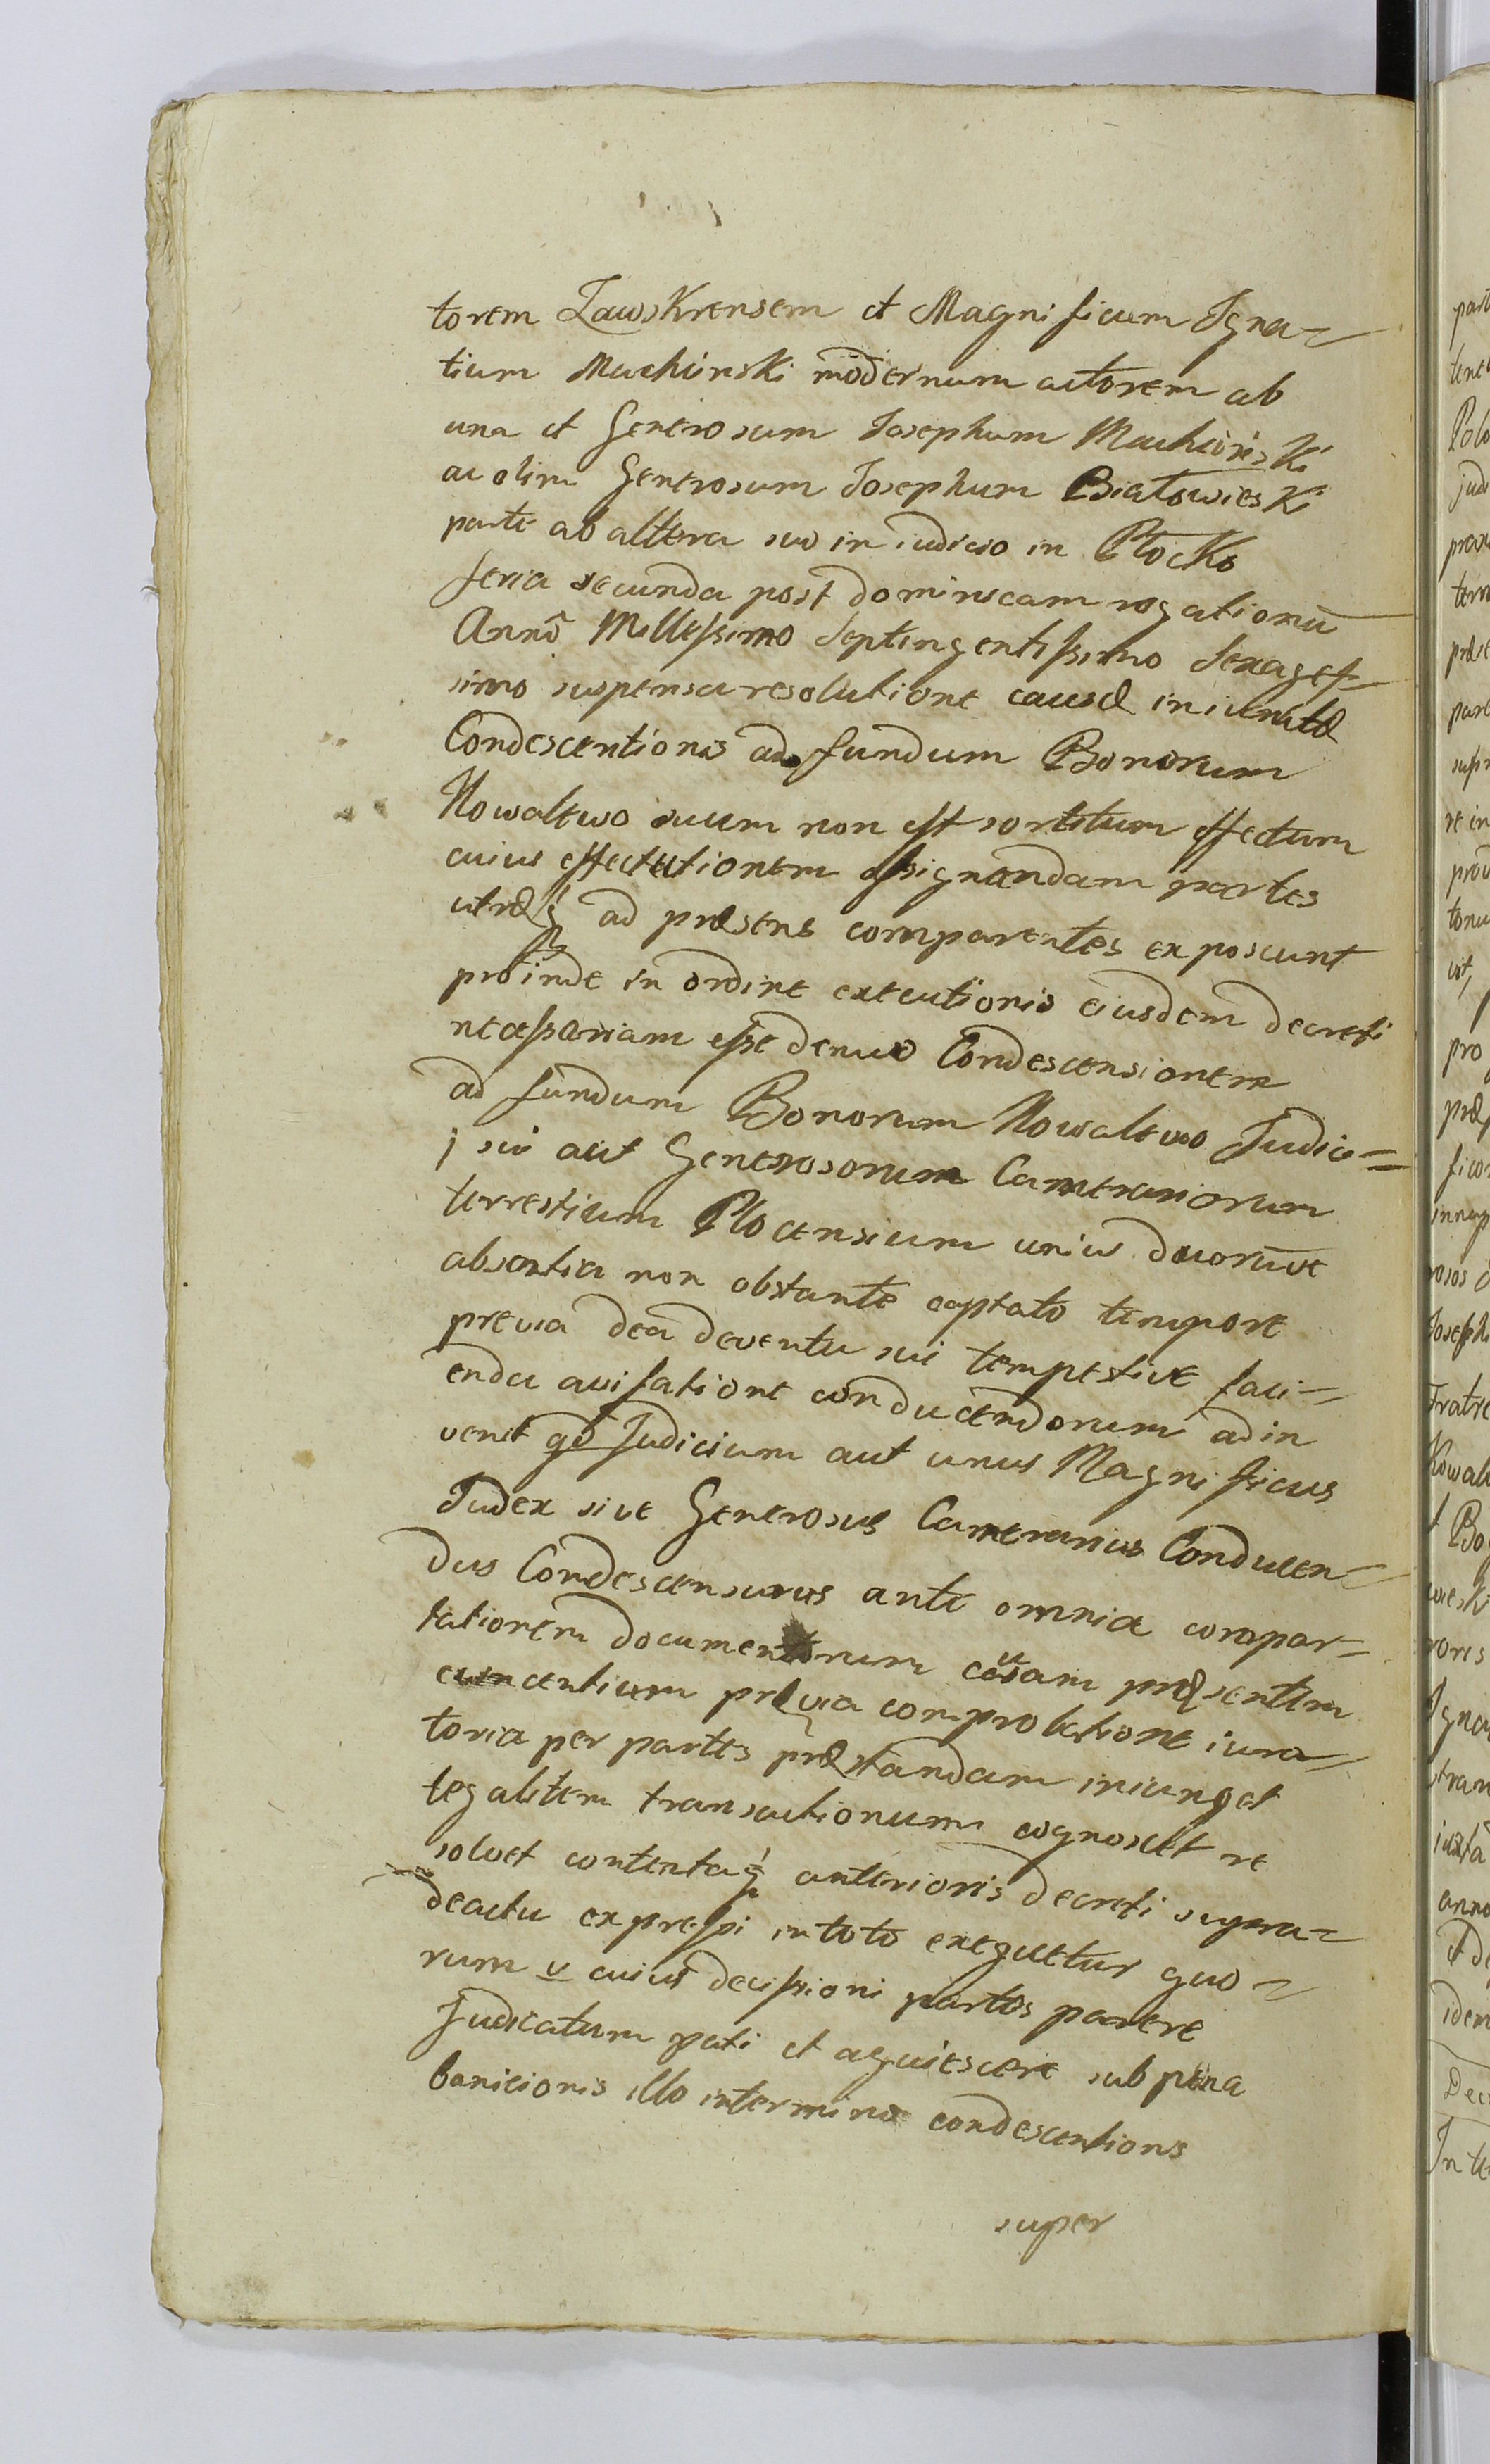 torem ZawsKrensem et Magnificum Igna=
tium Muchinski modernum actorem ab
una et Generosum Josephum Muchinski
ac olim Generosum Josephum Białowieski
parte ab altera suo in iudicio in Płocko
feria secunda post dominicam rogationū
Annō Millessimo Septingentissimo Sexages=
simo suspensa resolutione causæ iniunctæ
Condescentionis ad fundum Bonorum
Nowalewo suum non est sortitum effectum
cuius effectutionem assignandam partes
utræq ad præsens comparentes exposcunt
proinde in ordine executionis eiusdem decreti
necessariam esse denuo Condescensionem
ad fundum Bonorum Nowalewo Judicii=
j sui aut Generosorum Camerariorum
terrestrium Plocensium unius duorūve
absentia non obstante captato tempore
previa de adventu sui tempestive faci=
enda avisatione conducendorum adin
venit qd Judicium aut unus Magnificus
Judex sive Generosus Camerarius Conducen=
dus Condescensurus ante omnia compor=
tationem documentorum causam præsentem
cuncentium prævia comprobatione iura=
toria per partes præstandam iniunget
legalitem transactionum cognoscet re
solvet contentaq anterioris decreti supra=
deactu expressi intoto exequetur quo=
rum v cuius decissioni partes parere
Judicatum pati et aquiescere sub pæna
banicionis illo intermino condescentionis
super
part
tene
Polo
pare
pro
Fratre
Kowale
anno
idem